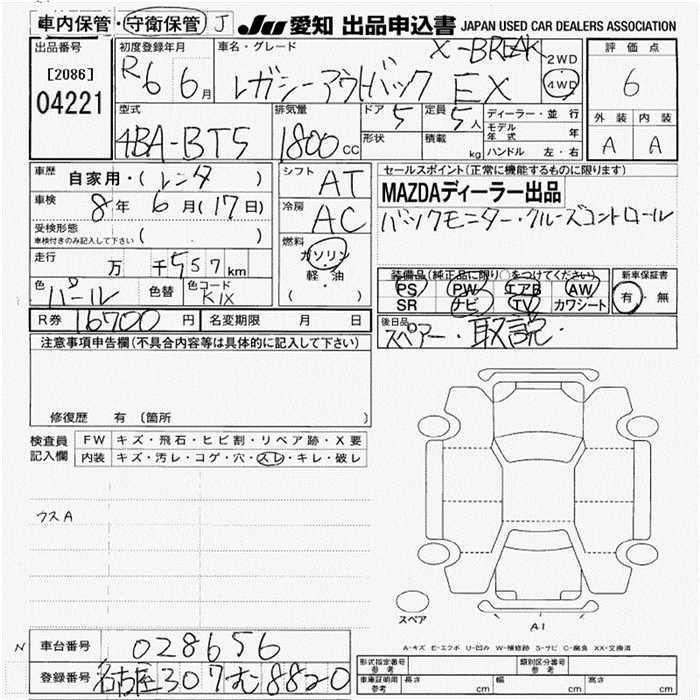 車内保管・守衛保管 J JU 愛知 出品申込書 JAPAN USED CAR DEALERS ASSOCIATION
出品番号 初度登録年月 車名・グレード X-BREAK 評価点
[2086] R6 6月 レガシーアウトバック EX 2WD 4WD 6
04221
型式 排気量 ドア 5 定員 5人 ディーラー・並行 外装 内装
4BA-BT5 1800cc 形状 積載 kg モデル年式 年 A A
ハンドル 左・右
車歴 自家用・(レンタ) シフト AT セールスポイント(正常に機能するものに限ります)
車検 8年 6月(17日) 冷房 AC MAZDAディーラー出品
受検形態 車検付きのみ記入して下さい ( ) バックモニター・クルーズコントロール
走行 万 千557km 燃料 ガソリン・軽・油 ( )
色 パール 色替 色コード K1X
装備品(純正品に限り○をつけてください) 新車保証書
PS PW エアB AW 有・無
SR ナビ TV カワシート
R券 16700円 名変期限 月 日
後日品 スペアー・取説・
注意事項申告欄(不具合内容等は具体的に記入して下さい)
修復歴 有 (箇所 )
検査員記入欄 FW キズ・飛石・ヒビ割・リペア跡・X要
内装 キズ・汚レ・コゲ・穴・スレ・キレ・破レ
ウスA
スペア A1
A-キズ E-エクボ U-凹み W-補修跡 S-サビ C-腐食 XX-交換済
N 車台番号 028656
登録番号 名古屋307む8820
形式指定番号 参考 類別区分番号 参考
車庫証明用 参考 長さ cm 幅 cm 高さ cm